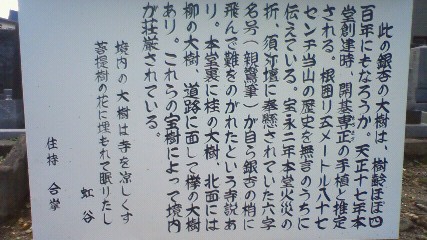 此の銀杏の大樹は、樹齢ほぼ四
百年にもなろうか。天正十七年本
堂創建時、開基専正の手植と推定
される。根囲り五メートル八十七
センチ当山の歴史を無言のうちに
伝えている。宝永二年本堂火災の
折、須弥壇に奉懸されていた六字
名号(親鸞筆)が自ら銀杏の梢に
飛んで難をのがれたという寺説あ
り。本堂裏に桂の大樹、北面には
柳の大樹、道路に面して欅の大樹
あり。これらの宝樹によって境内
が荘厳されている。
境内の大樹は寺を涼しくす
虹谷
菩提樹の花に埋もれて眠りたし
住持 合掌